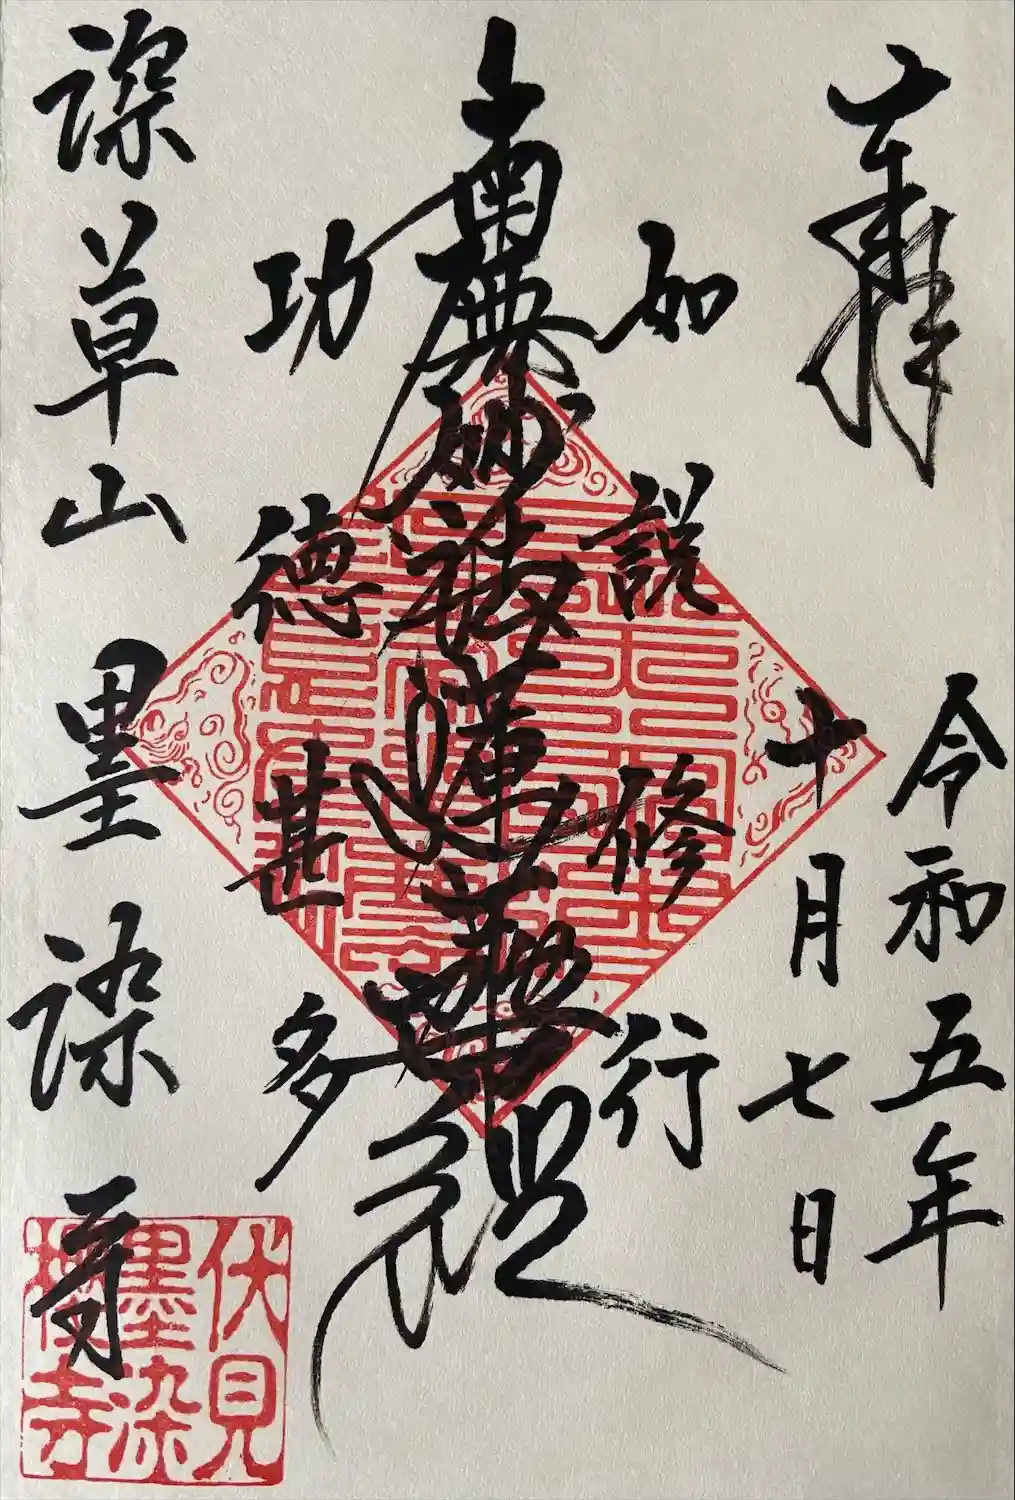 奉拝
令和五年
十月七日
如説修行
南無妙法蓮華経
功徳甚多
深草山墨染寺
伏見
墨染
桜寺